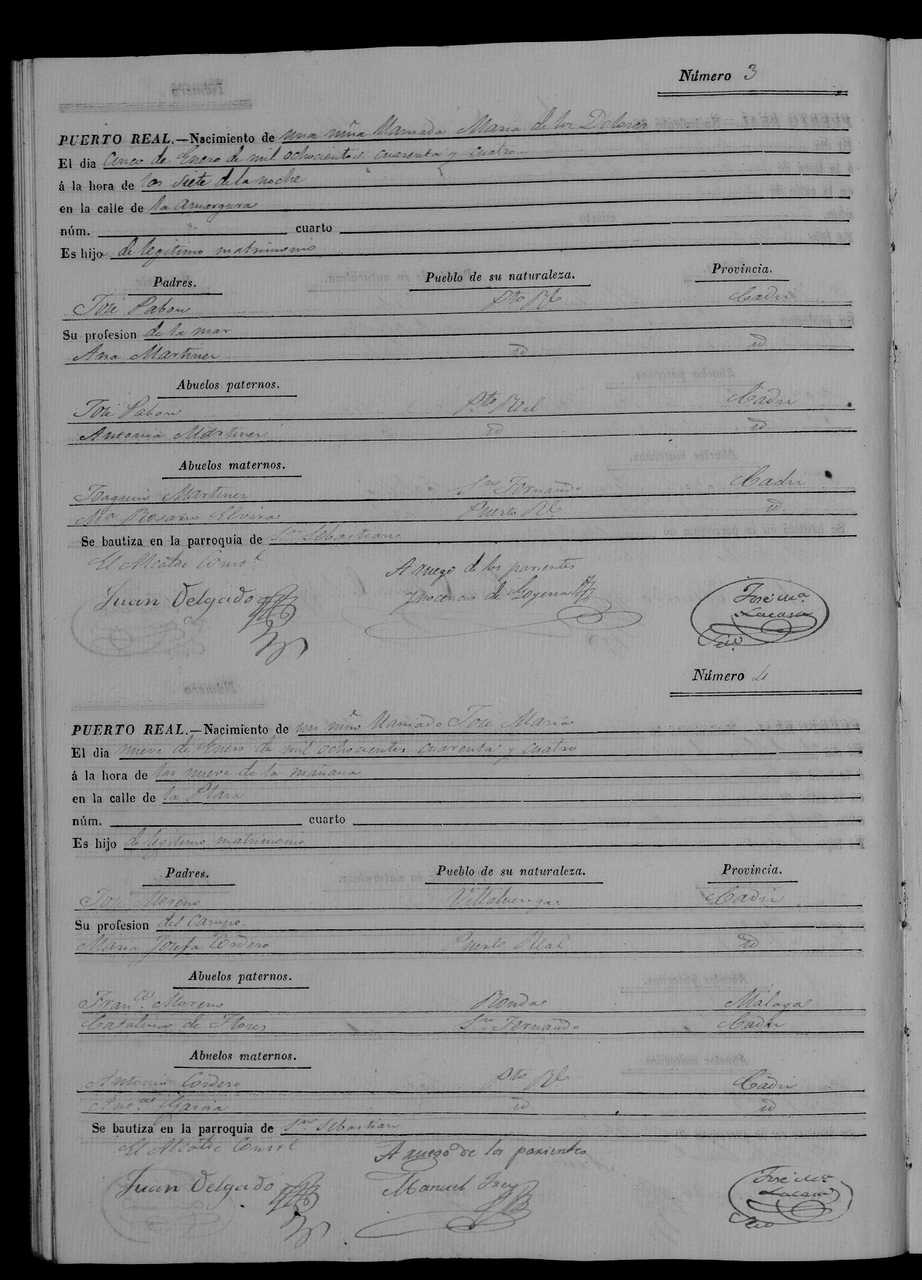 Número 3
PUERTO REAL.—Nacimiento de una niña llamada Maria de los Dolores
El dia cinco de Enero de mil ochocientos cuarenta y cuatro
á la hora de las siete de la noche
en la calle de la Amargura
núm. cuarto
Es hijo de legitimo matrimonio
Padres. Pueblo de su naturaleza. Provincia.
José Pabon Pto Rl Cadiz
Su profesion de la mar
Ana Martinez id id
Abuelos paternos.
José Pabon Pto Real Cadiz
Antonia Martinez id id
Abuelos maternos.
Joaquin Martinez Sn Fernando Cadiz
Ma Rosario Elvira Puerto Rl id
Se bautiza en la parroquia de Sn Sebastian
El Alcalde Const
A ruego de los parientes
Juan Delgado Ynocencio de Goyena José Ma Lacasa
Srio
Número 4
PUERTO REAL.—Nacimiento de un niño llamado Jose Maria
El dia nueve de Enero de mil ochocientos cuarenta y cuatro
á la hora de las nueve de la mañana
en la calle de la Plaza
núm. cuarto
Es hijo de legitimo matrimonio
Padres. Pueblo de su naturaleza. Provincia.
José Moreno Villaluenga Cadiz
Su profesion del Campo
Maria Josefa Cordero Puerto Real id
Abuelos paternos.
Franco. Moreno Ronda Malaga
Catalina de Flores Sn Fernando Cadiz
Abuelos maternos.
Antonio Cordero Pto Rl Cadiz
Garcia id id
Se bautiza en la parroquia de Sn Sebastian
El Alcalde Const
A ruego de los parientes
Juan Delgado Manuel José Ma Lacasa
Srio